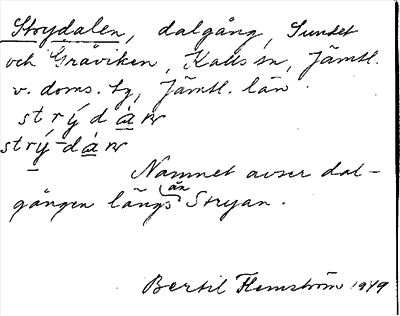 Strydalen, dalgång, Sundet
och Gråviken, Kalls sn, Jämtl.
v. doms. tg, Jämtl. län.
strý d a᷄ n
strý-da᷄n
Namnet avser dal-
gången längs ån Stryan.
Bertil Flemström 1949